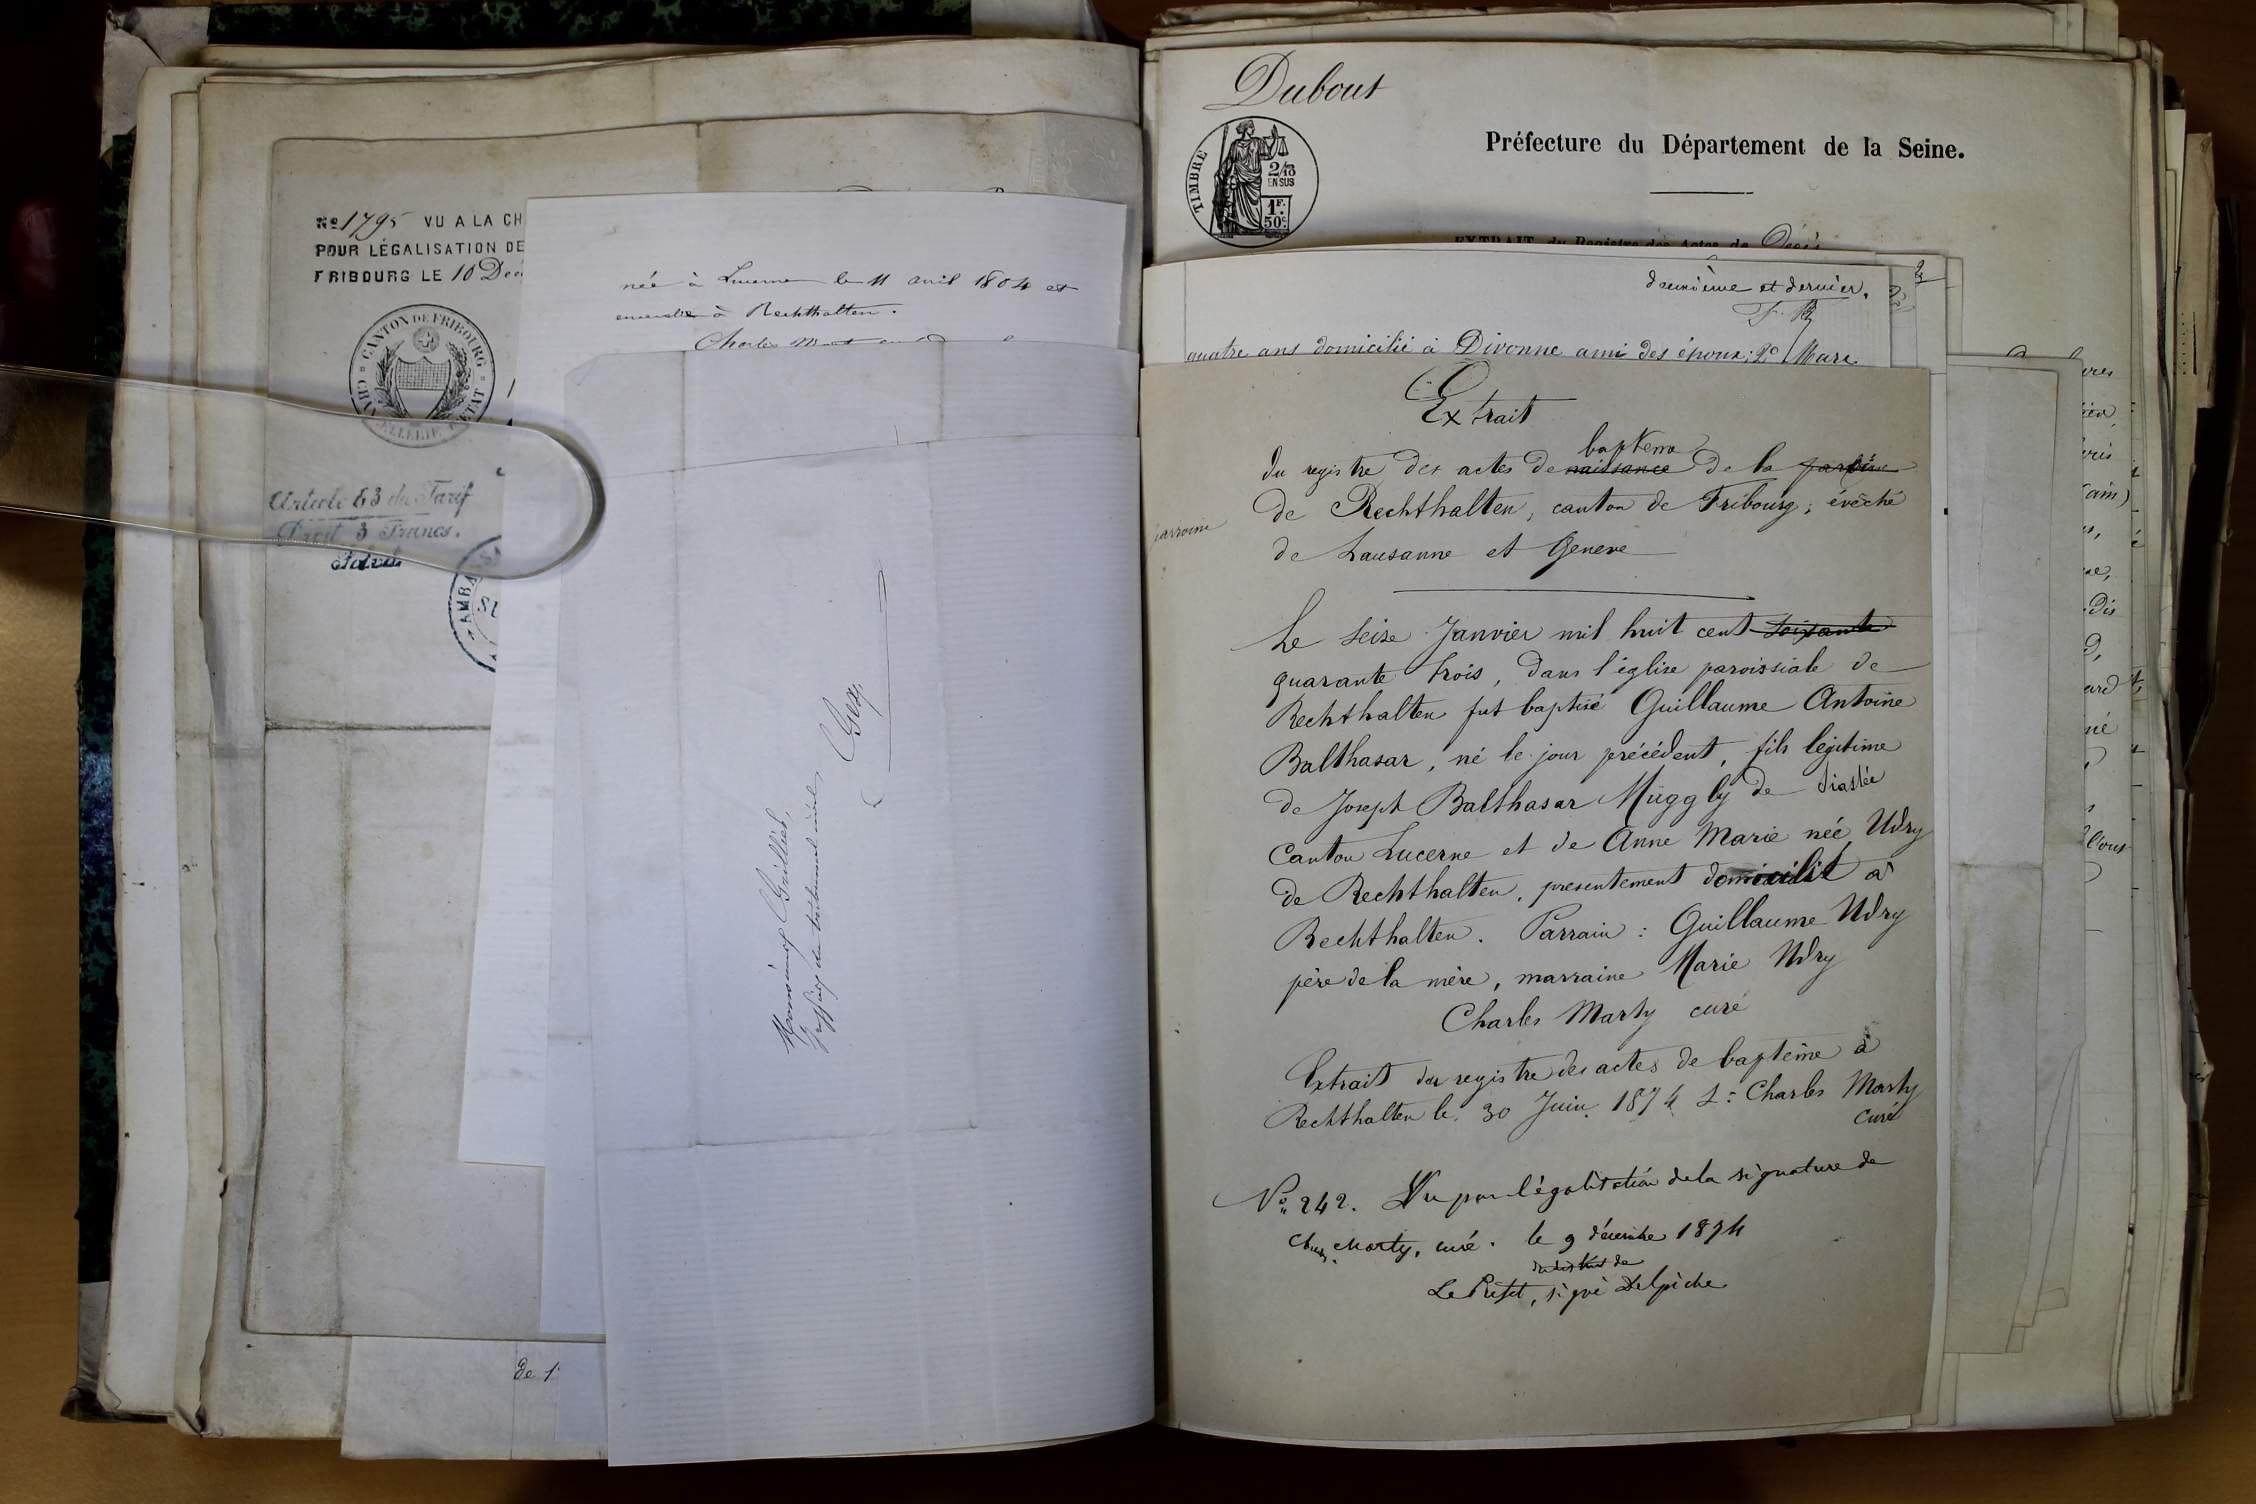 No 1795 VU A LA CH
POUR LÉGALISATION DE
FRIBOURG LE 10 Déc
CANTON DE FRIBOURG
Article 63 du Tarif
Droit 3 Francs.
née à Lucerne le 11 avril 1804 et
à Rechthalten.
Charles
Monsieur Grilliet,
Greffier du tribunal civil,
Gex.
de l'
Dubout
TIMBRE
2/10
EN SUS
1F.
50c
Préfecture du Département de la Seine.
EXTRAIT du Registre des Actes de Décès
deuxième et dernier.
quatre ans domicilié à Divonne ami des époux; 2º Marc
Extrait
bapteme
du registre des actes de naissance de la paroisse
de Rechthalten, canton de Fribourg, évêché
de Lausanne et Geneve
Le seize Janvier mil huit cent soixante
quarante trois, dans l'église paroissiale de
Rechthalten fut baptisé Guillaume Antoine
Balthasar, né le jour précédent, fils légitime
de Joseph Balthasar Müggly de
Canton Lucerne et de Anne Marie née Udry
de Rechthalten, presentement domicilié à
Rechthalten. Parrain : Guillaume Udry
père de la mère, marraine Marie Udry
Charles Marty curé
Extrait du registre des actes de baptême à
Rechthalten le 30 Juin 1874 S: Charles Marty
curé
No 242. Vu pour légalisation de la signature de
Chs Marty, curé. le 9 décembre 1874
Le Préfet, signé Delpèche